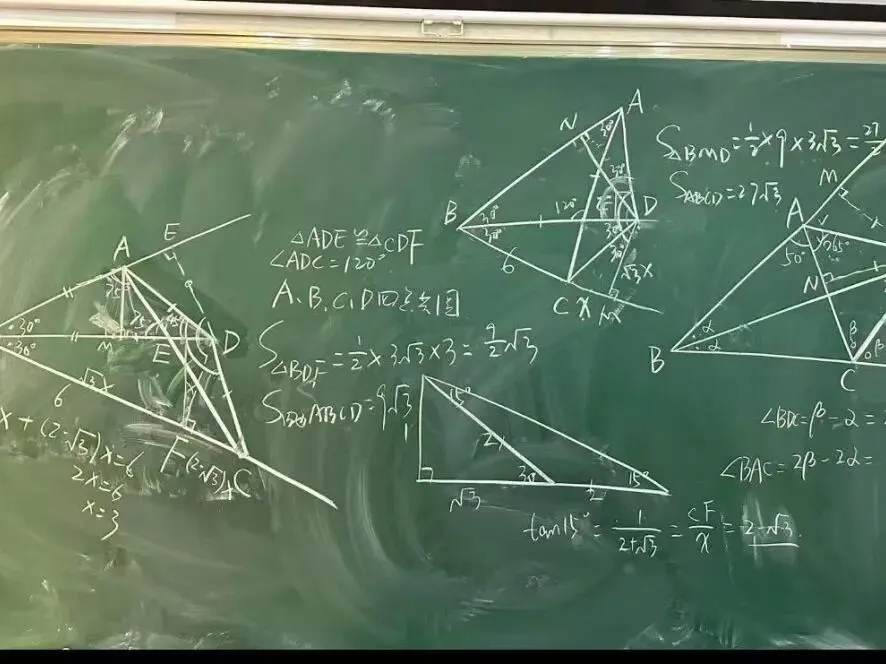 A
E
30°
30°
M
E
D
6
√3x
F
(2-√3)x
C
x+(2-√3)x=6
2x=6
x=3
△ADE≌△CDF
∠ADC=120°
A、B、C、D四点共圆
S△BDF=1/2×3√3×3=9/2√3
S四边ABCD=9√3
1
15°
2
30°
2
15°
√3
tan15°=1/(2+√3)=CF/x=2-√3
A
N
30°
B
30°
30°
120°
D
30°
6
√3x
C
x
M
S△BMD=1/2×9×3√3=27/2
SABCD=27√3
M
A
50°
65°
N
B
α
α
β
β
C
∠BDC=β-α=
∠BAC=2β-2α=